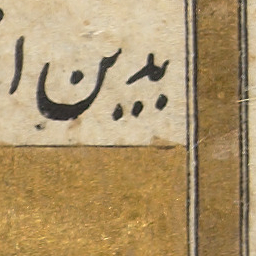 بدین ا